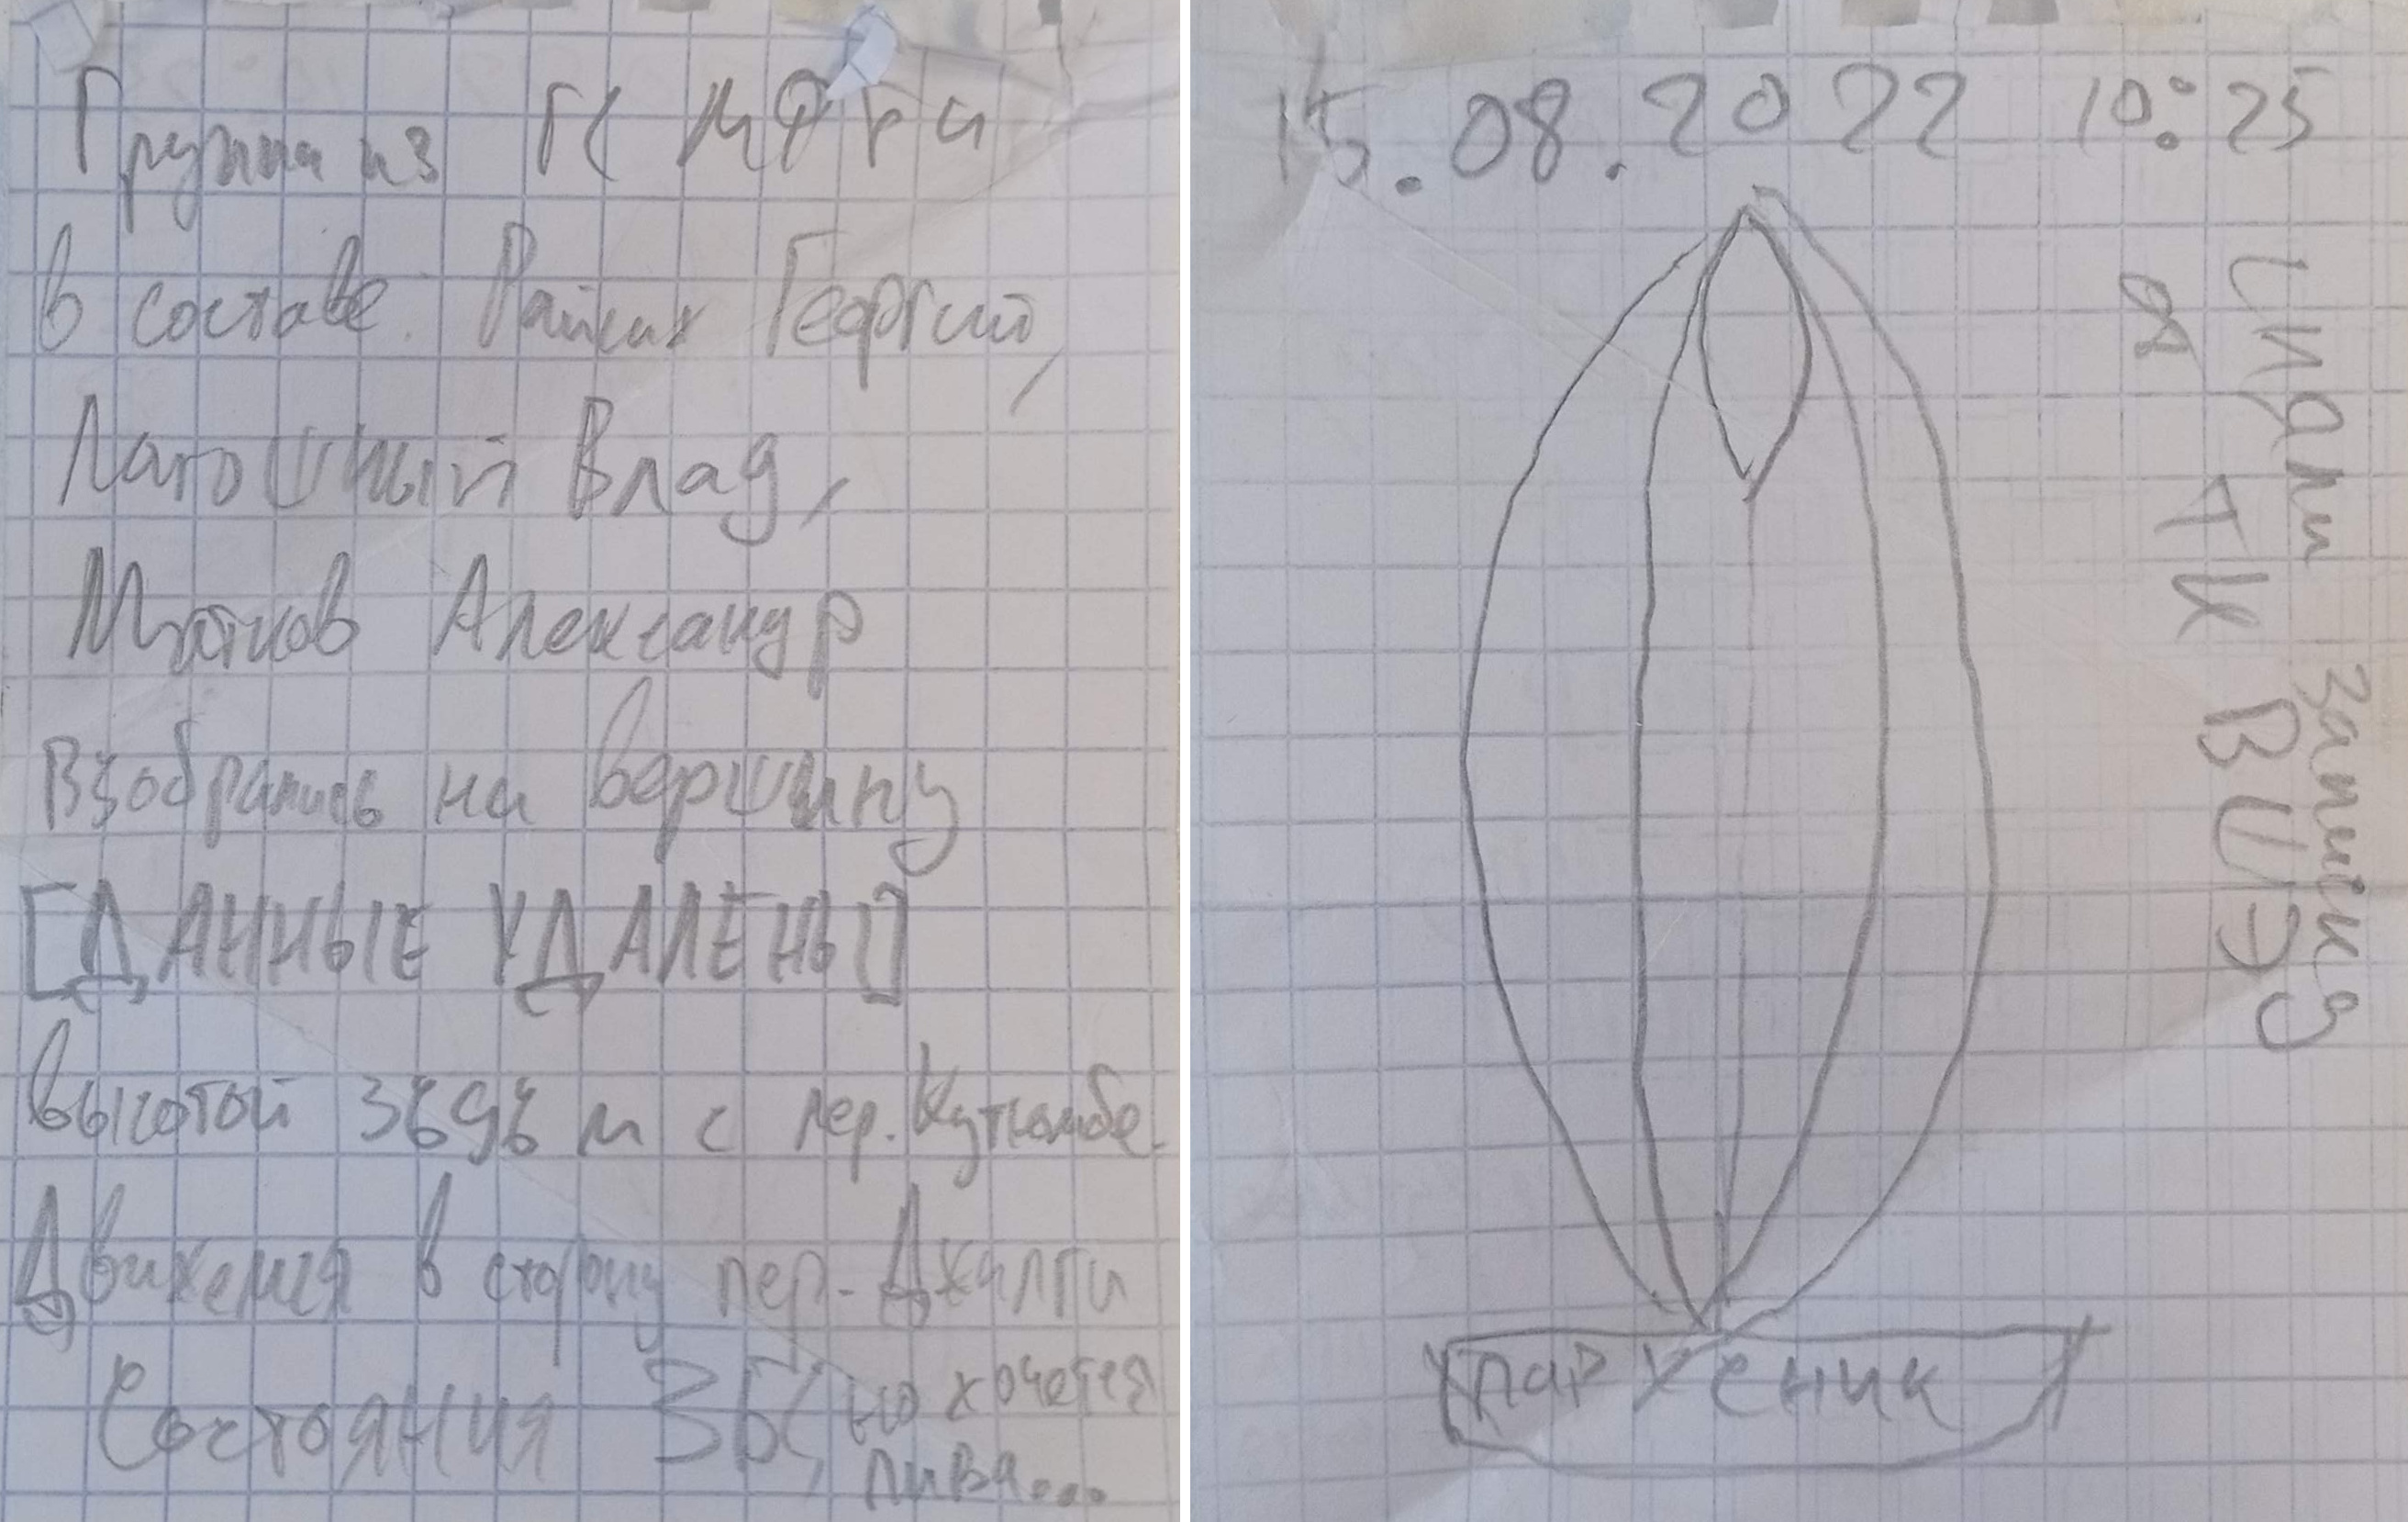 Группа из ГК МФТИ
в составе: Райких Георгий,
Латошный Влад,
Мятков Александр
Взобрались на вершину
[ДАННЫЕ УДАЛЕНЫ]
высотой 3696 м с пер.
Движемся в сторону пер. Джалпи
Состояния ЗБС, но хочется
пива...
15.08.2022 10:25
Сидели записку
ТК ВШЭ